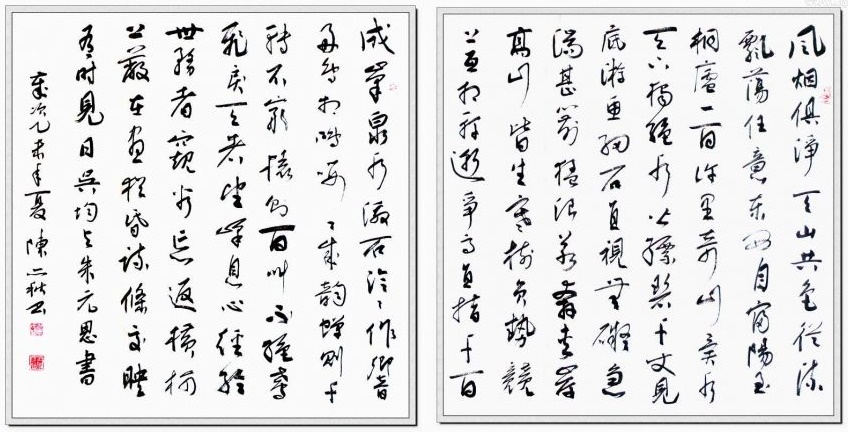 風烟俱淨天山共色從流
飄蕩任意東西自富陽至
桐廬一百許里奇山異水
天下獨絕水皆縹碧千丈見
底游魚細石直視無礙急
湍甚箭猛浪若奔夾岸
高山皆生寒樹負勢競
上互相軒邈爭高直指千百
成峯泉水激石泠泠作響
好鳥相鳴嚶嚶成韻蟬則千
轉不窮猿則百叫不絕鳶
飛戾天者望峯息心經綸
世務者窺谷忘返橫柯
上蔽在晝猶昏疏條交映
有時見日吳均與朱元思書
歲次乙未年夏陳二秋書